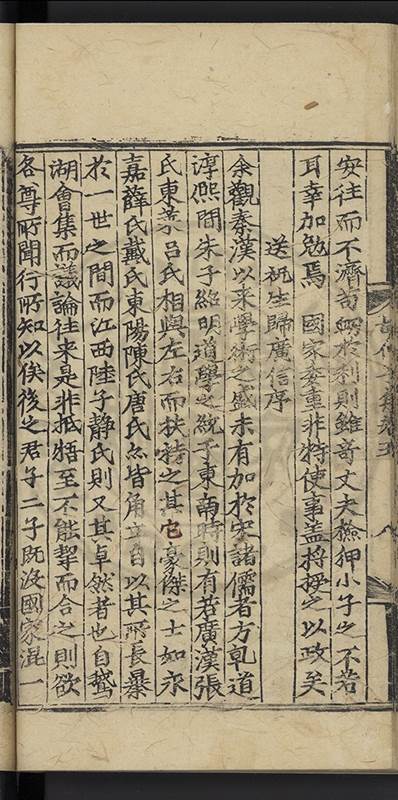 安往而不濟苟䧟於利則雖竒丈夫檢押小子之不若
耳幸加勉焉　國家委重非特使事盖将授之以政矣
送祝生歸廣信序
余觀秦漢以来學術之盛未有加於宋諸儒者方乹道
淳熈間朱子紹明道學之統于東南時則有若廣漢張
氏東萊吕氏相與左右而扶持之其它豪傑之士如永
嘉薛氏戴氏東陽陳氏唐氏亦皆角立自以其所長暴
於一世之間而江西陸子静氏則又其卓然者也自鵝
湖會集而議論往来是非抵牾至不能挈而合之則欲
各尊所聞行所知以俟後之君子二子既没國家混一